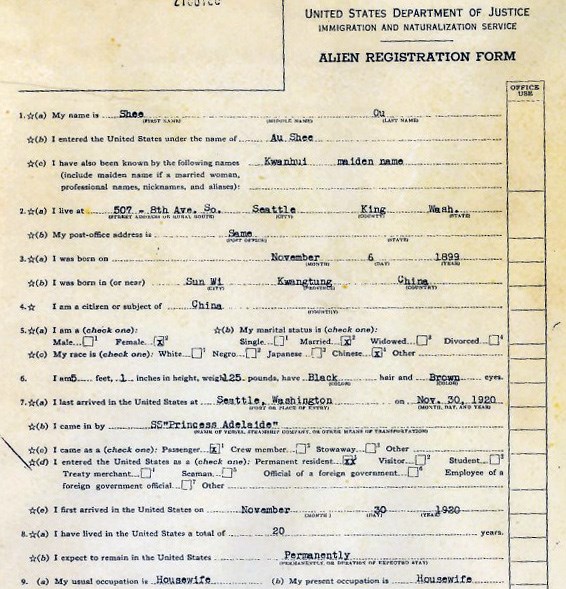 UNITED STATES DEPARTMENT OF JUSTICE
IMMIGRATION AND NATURALIZATION SERVICE
ALIEN REGISTRATION FORM
OFFICE USE
1. ☆(a) My name is Shee Ou
(FIRST NAME) (MIDDLE NAME) (LAST NAME)
☆(b) I entered the United States under the name of Au Shee
☆(c) I have also been known by the following names Kwanhui maiden name
(include maiden name if a married woman,
professional names, nicknames, and aliases):
2. ☆(a) I live at 507 - 8th Ave. So. Seattle King Wash.
(STREET ADDRESS OR RURAL ROUTE) (CITY) (COUNTY) (STATE)
☆(b) My post-office address is Same
(POST OFFICE) (STATE)
3. ☆(a) I was born on November 6 1899
(MONTH) (DAY) (YEAR)
☆(b) I was born in (or near) Sun Wi Kwangtung China
(CITY) (PROVINCE) (COUNTRY)
4. ☆ I am a citizen or subject of China
(COUNTRY)
5. ☆(a) I am a (check one): ☆(b) My marital status is (check one):
Male...☐1 Female...☒2 Single...☐1 Married...☒2 Widowed...☐3 Divorced...☐4
☆(c) My race is (check one): White...☐1 Negro...☐2 Japanese...☐3 Chinese...☒4 Other
6. I am 5 feet, 1 inches in height, weigh 125 pounds, have Black hair and Brown eyes.
(COLOR) (COLOR)
7. ☆(a) I last arrived in the United States at Seattle, Washington on Nov. 30, 1920
(PORT OR PLACE OF ENTRY) (MONTH, DAY, AND YEAR)
☆(b) I came in by SS"Princess Adelaide"
(NAME OF VESSEL, STEAMSHIP COMPANY, OR OTHER MEANS OF TRANSPORTATION)
☆(c) I came as a (check one): Passenger...☒1 Crew member...☐2 Stowaway...☐3 Other
☆(d) I entered the United States as a (check one): Permanent resident...☒1 Visitor...☐2 Student...☐3
Treaty merchant...☐4 Seaman...☐5 Official of a foreign government...☐6 Employee of a
foreign government official...☐7 Other
☆(e) I first arrived in the United States on November 30 1920
(MONTH) (DAY) (YEAR)
8. ☆(a) I have lived in the United States a total of 20 years.
☆(b) I expect to remain in the United States Permanently
(PERMANENTLY, OR DURATION OF EXPECTED STAY)
9. (a) My usual occupation is Housewife (b) My present occupation is Housewife